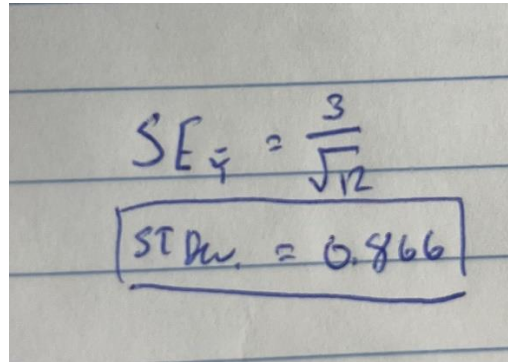 SE_ȳ = 3/√12
ST Dev. = 0.866